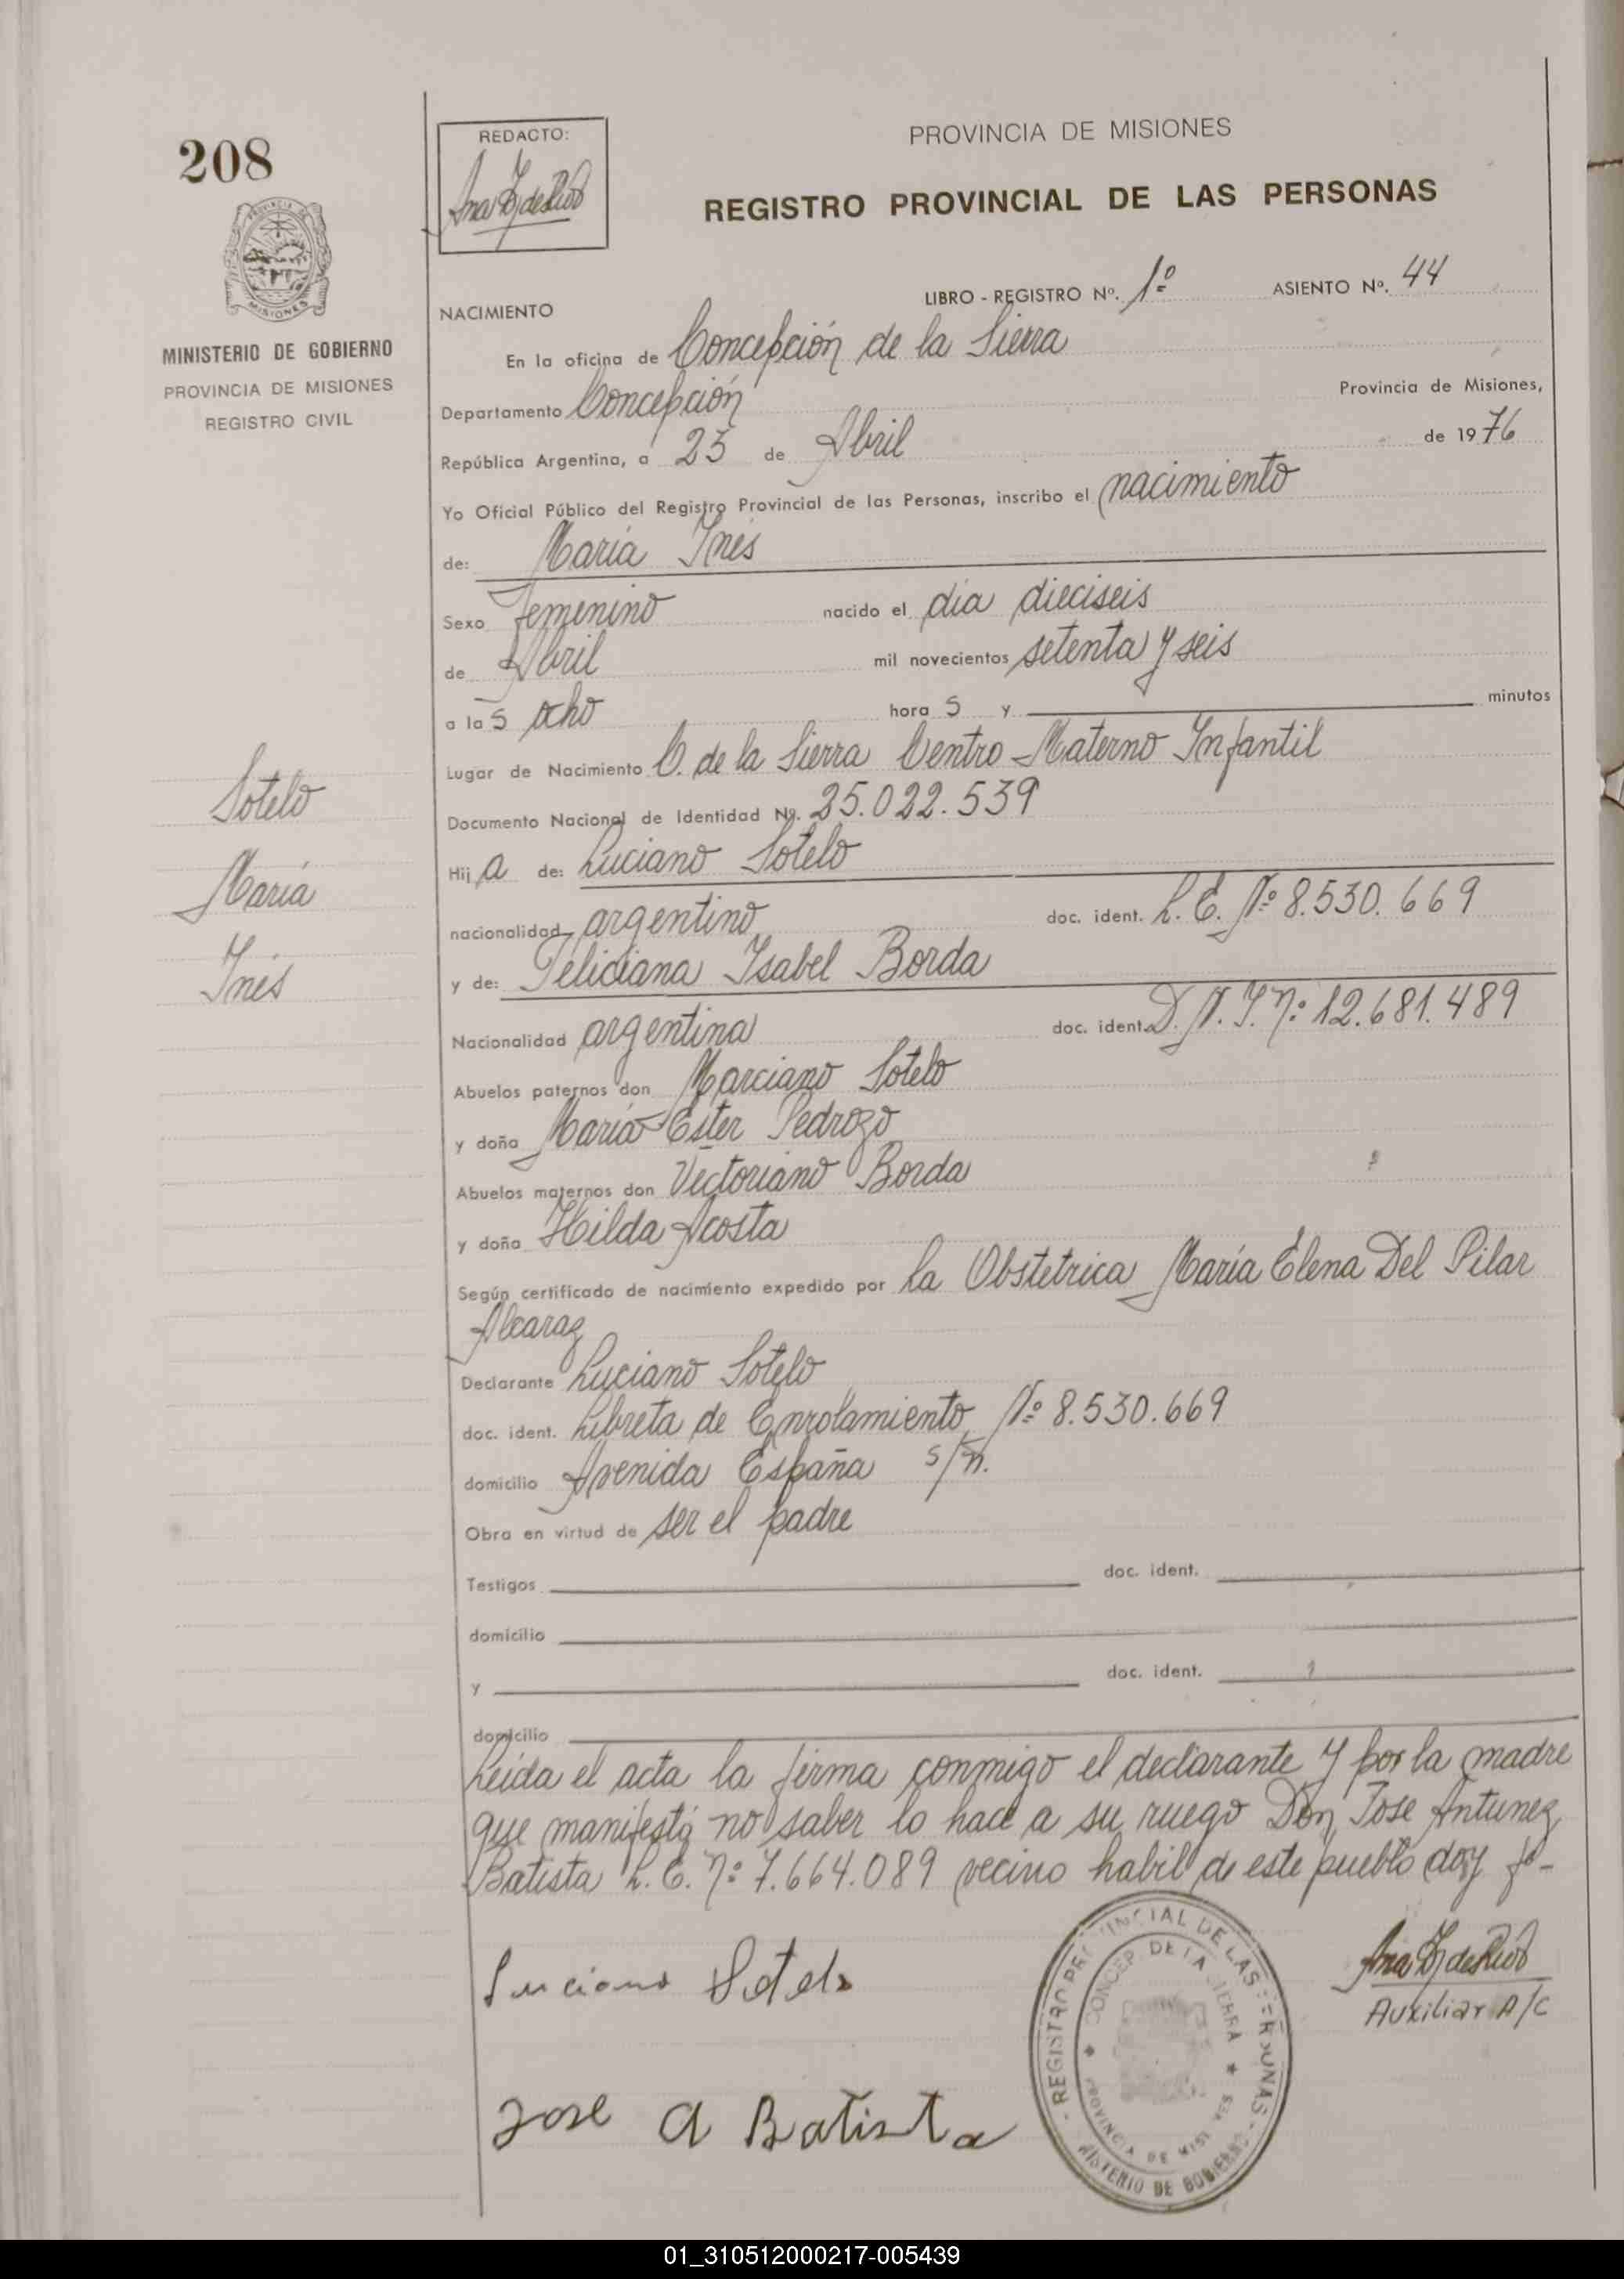 208
REDACTO:
PROVINCIA DE MISIONES
REGISTRO PROVINCIAL DE LAS PERSONAS
PROVINCIA DE MISIONES
MINISTERIO DE GOBIERNO
PROVINCIA DE MISIONES
REGISTRO CIVIL
LIBRO - REGISTRO Nº. 1º ASIENTO Nº. 44
NACIMIENTO
En la oficina de Concepción de la Sierra
Departamento Concepción Provincia de Misiones,
República Argentina, a 23 de Abril de 1976
Yo Oficial Público del Registro Provincial de las Personas, inscribo el nacimiento
de: María Inés
Sexo Femenino nacido el dia dieciseis
de Abril mil novecientos setenta y seis
a las ocho hora s y minutos
Lugar de Nacimiento C. de la Sierra Centro Materno Infantil
Documento Nacional de Identidad Nº. 25.022.539
Hija de: Luciano Sotelo
nacionalidad argentino doc. ident. L. E. Nº 8.530.669
y de: Feliciana Isabel Borda
Nacionalidad argentina doc. ident. D. N. I. Nº: 12.681.489
Abuelos paternos don Marciano Sotelo
y doña María Ester Pedrozo
Abuelos maternos don Victoriano Borda
y doña Hilda Acosta
Según certificado de nacimiento expedido por La Obstetrica María Elena Del Pilar
Alcaraz
Declarante Luciano Sotelo
doc. ident. Libreta de Enrolamiento Nº 8.530.669
domicilio Avenida España s/n.
Obra en virtud de ser el padre
Testigos doc. ident.
domicilio
y doc. ident.
domicilio
Leida el acta la firma conmigo el declarante y por la madre
que manifestó no saber lo hace a su ruego Don Jose Antunez
Batista L. E. Nº: 7.664.089 vecino habil de este pueblo doy fé-
Sotelo
María
Inés
Luciano Sotelo
Jose A Batista
Auxiliar A/C
REGISTRO PROVINCIAL DE LAS PERSONAS
CONCEP. DE LA SIERRA
PROVINCIA DE MISIONES
MINISTERIO DE GOBIERNO
01_310512000217-005439